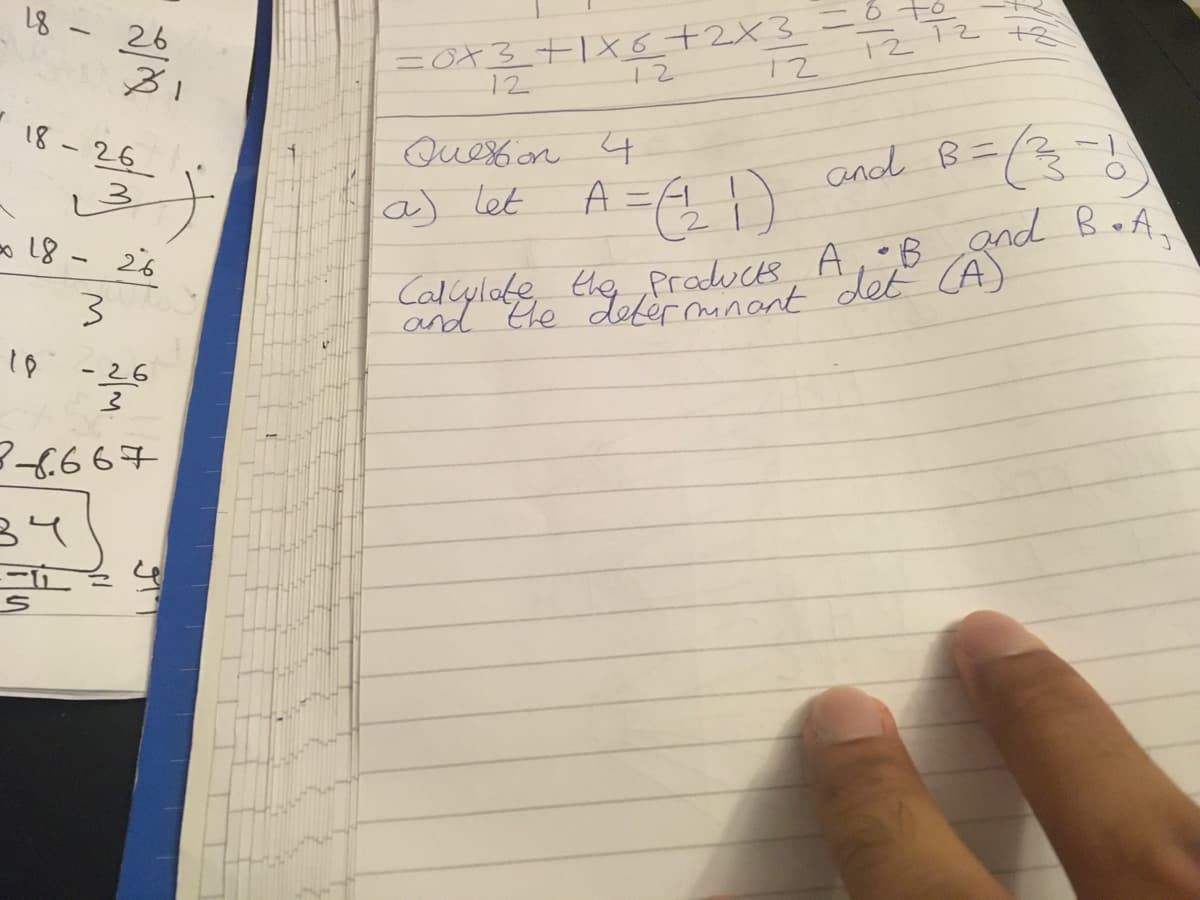 18 - 26/3 1
18 - 26/3
18 - 26
3
18 - 26/3
-8.667
34
-11/5 = 4
= 0×3/12 + 1×6/12 + 2×3/12 = 6/12 + 6/12
Question 4
a) let A = (-1 1 / 2 1) and B = (2 -1 / 3 0)
Calculate the products A • B and B • A,
and the determinant det (A)